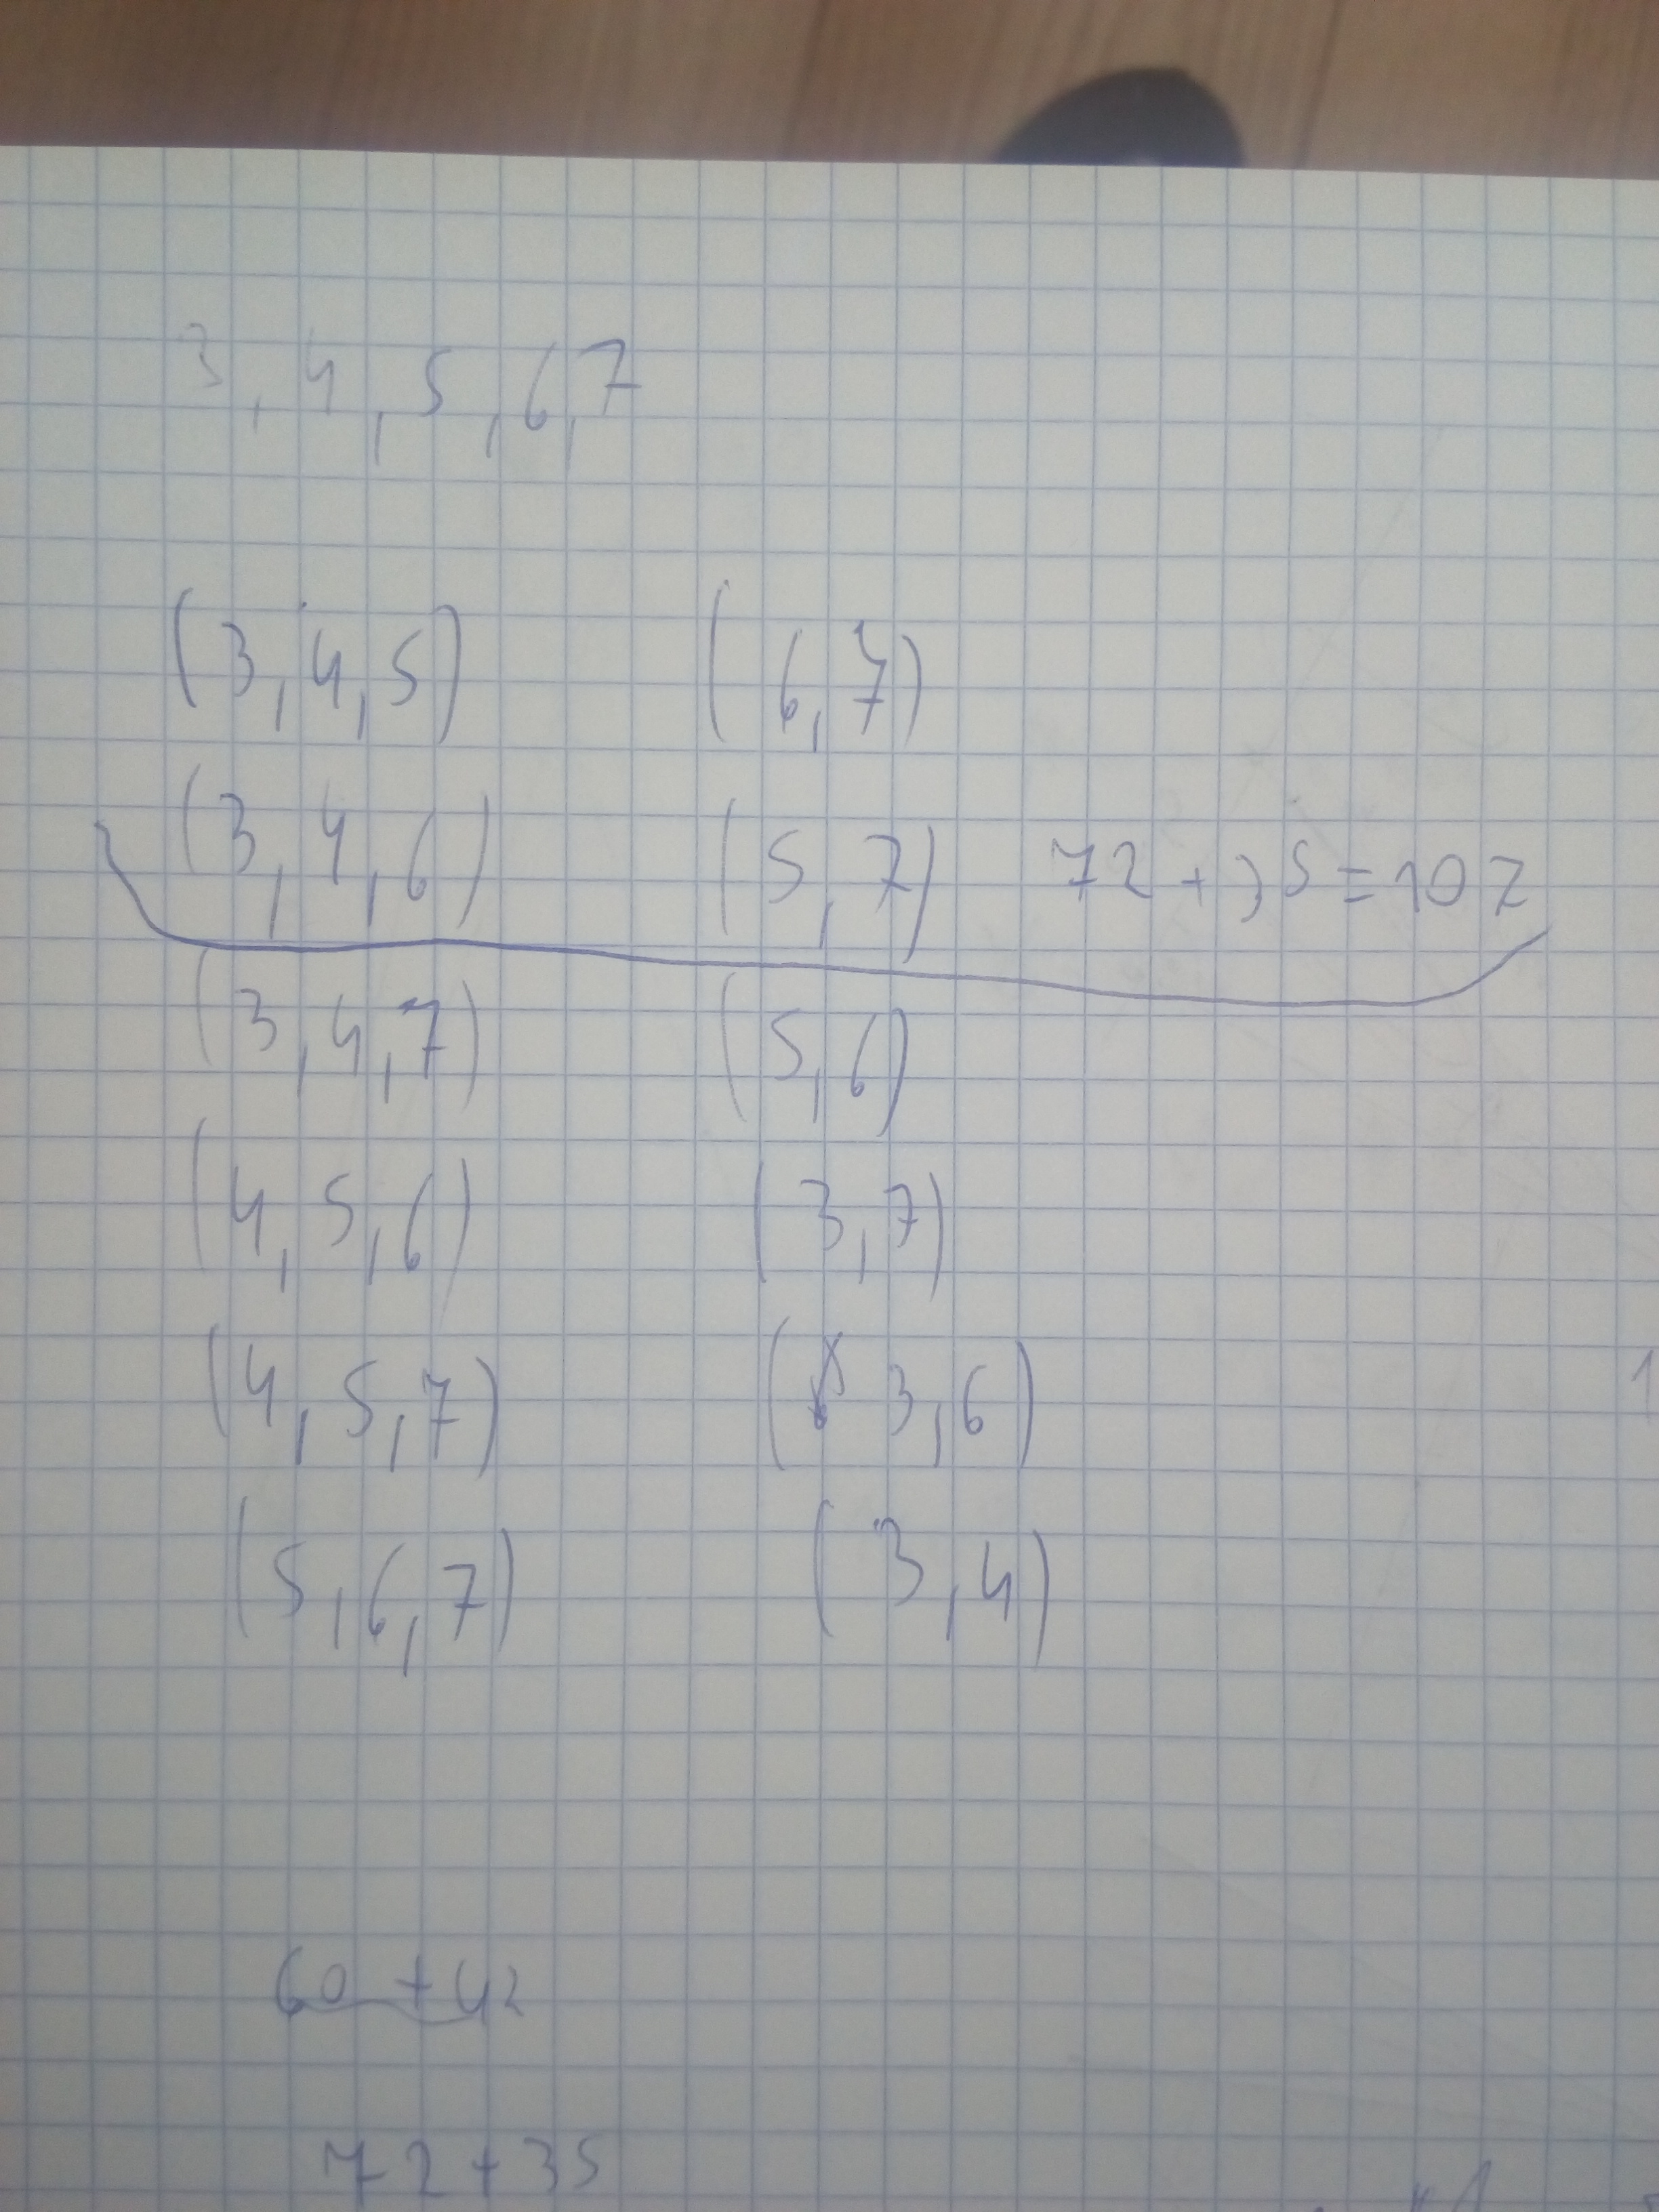 3, 4, 5, 6, 7
(3, 4, 5) (6, 7)
(3, 4, 6) (5, 7) 72 + 35 = 107
(3, 4, 7) (5, 6)
(4, 5, 6) (3, 7)
(4, 5, 7) (3, 6)
(5, 6, 7) (3, 4)
60 + 42
72 + 35